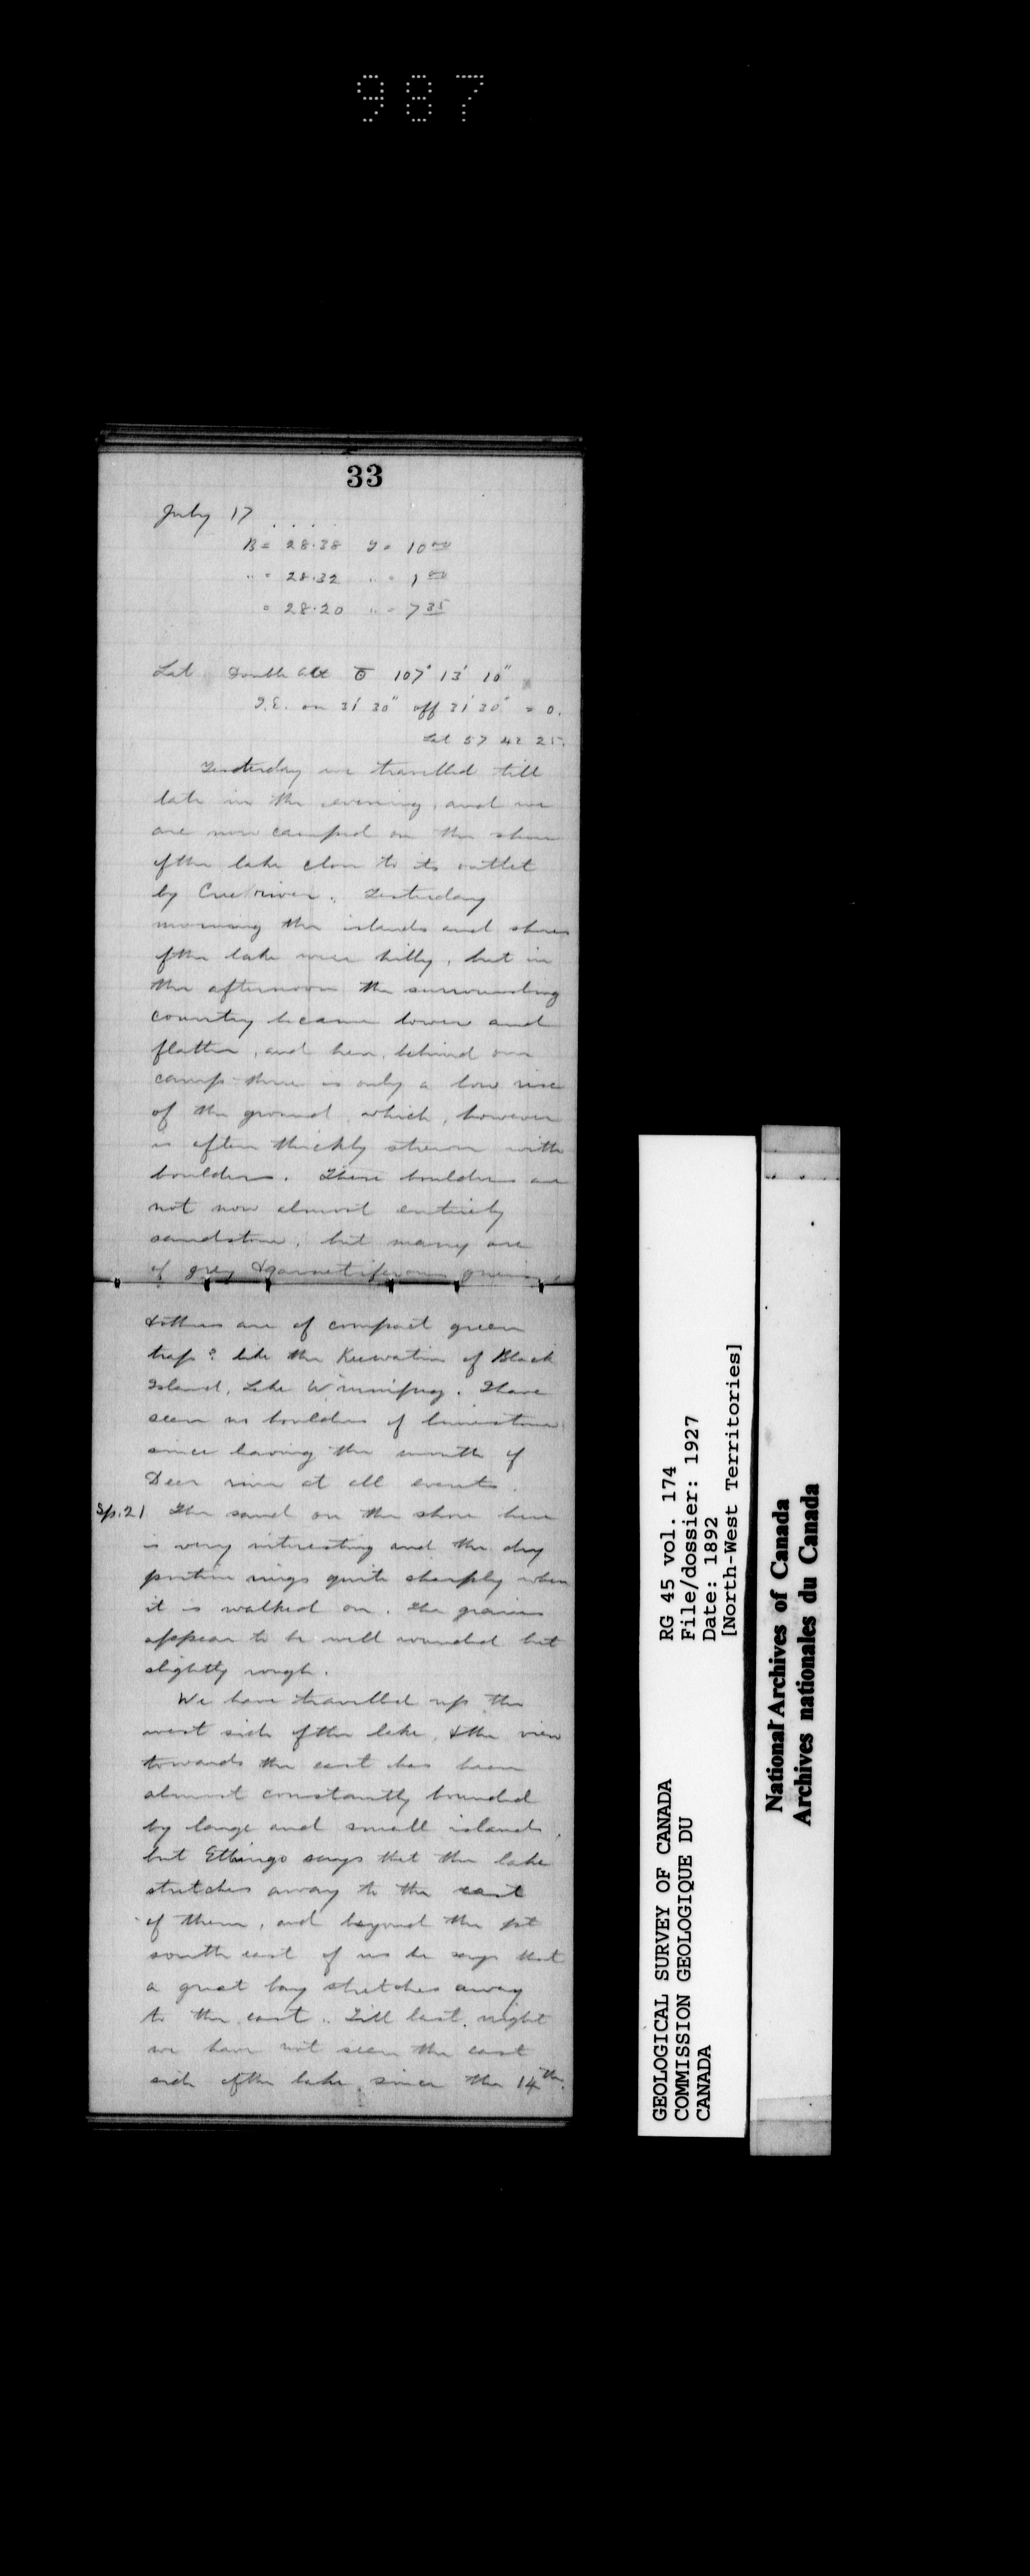 987
33
July 17 . . . .
B = 28.38 T = 10 00
" = 28.32 " = 1 00
= 28.20 " = 7 35
Lat Double Alt O 107° 13' 10"
I.E. on 31' 30" off 31' 30" = 0.
Lat 57 42 25.
Yesterday we travelled till
late in the evening, and we
are now camped on the shore
of the lake close to its outlet
by Cree river. Yesterday
morning the islands and shores
of the lake were hilly, but in
the afternoon the surrounding
country became lower and
flatter, and here, behind our
camp there is only a low rise
of the ground, which, however
is often thickly strewn with
boulders. These boulders are
not now almost entirely
sandstone, but many are
of grey & garnetiferous gneiss,
& others are of compact green
trap? like the Keewatin of Black
Island, Lake Winnipeg. I have
seen no boulders of limestone
since leaving the mouth of
Deer river at all events.
Sp. 21 The sand on the shore here
is very interesting and the dry
portion rings quite sharply when
it is walked on. The grains
appear to be well rounded but
slightly rough.
We have travelled up the
west side of the lake, & the view
towards the east has been
almost constantly bounded
by large and small islands,
but Ethingo says that the lake
stretches away to the east
of them, and beyond the pt
south east of us he says that
a great bay stretches away
to the east. Till last night
we have not seen the east
side of the lake since the 14th.
GEOLOGICAL SURVEY OF CANADA
COMMISSION GEOLOGIQUE DU
CANADA
RG 45 vol. 174
File/dossier: 1927
Date: 1892
[North-West Territories]
National Archives of Canada
Archives nationales du Canada